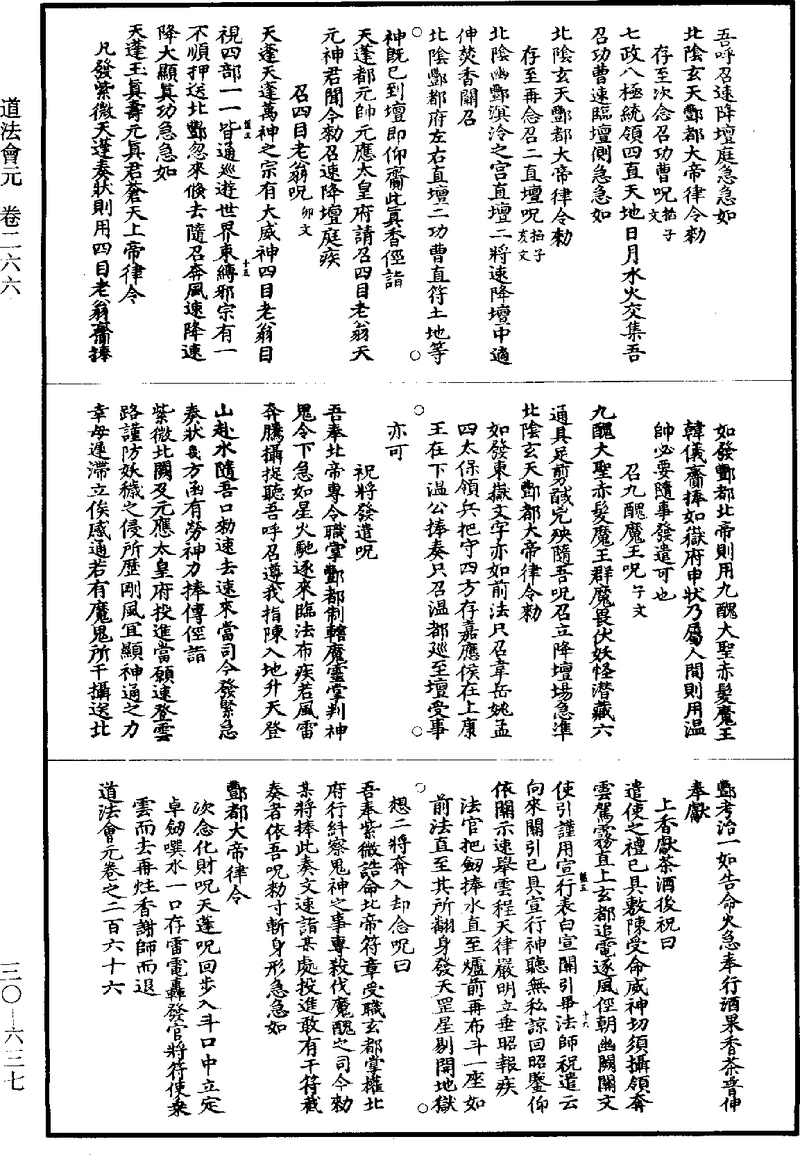 吾呼召速降壇庭急急如
北陰玄天酆都大帝律令勑
存至次念召功曹呪掐子文
七政八極統領四直天地日月水火交集吾
召功曹速臨壇側急急如
北陰玄天酆都大帝律令勑
存至再念召二直壇呪掐子亥文
北陰幽酆溟泠之宫直壇二將速降壇中適
伸焚香關召
北陰酆都府左右直壇二功曹直符土地等
神既已到壇即仰齎此真香徑詣
天蓬都元帥元應太皇府請召四目老翁天
元神君聞令勑召速降壇庭疾
召四目老翁呪卯文
天蓬天蓬萬神之宗有大威神四目老翁目
視四部一一皆通巡遊世界束縛邪宗有一
不順押送北酆忽來倏去隨召奔風速降速
降大顯真功急急如
天蓬玉真壽元真君蒼天上帝律令
凡發紫微天蓬奏狀則用四目老翁齎捧
如發酆都北帝則用九醜大聖赤髮魔王
韓儀齎捧如嶽府申狀乃屬人間則用溫
帥必要隨事發遣可也
召九醜魔王呪午文
九醜大聖赤髮魔王群魔畏伏妖怪潛藏六
通具足剪馘兇殃隨吾呪召立降壇場急準
北陰玄天酆都大帝律令勑
如發東嶽文字亦如前法只召韋岳姚孟
四太保領兵把守四方存嘉應侯在上康
王在下溫公捧奏只召溫都巡至壇受事
亦可
祝將發遣呪
吾奉北帝專令職掌酆都制轄魔靈掌判神
鬼令下急如星火馳逐來臨法布疾若風雷
奔騰攝捉聽吾呼召遵我指陳入地升天登
山赴水隨吾口勑速去速來當司今發緊急
奏狀幾方函有勞神力捧傳徑詣
紫微北闕及元應太皇府投進當願速登雲
路謹防妖穢之侵所歷剛風冝顯神通之力
幸毋遲滯立俟感通若有魔鬼所干攝送北
酆考治一如告命火急奉行酒果香茶普伸
奉獻
上香獻茶酒後祝曰
遣使之禮已具敷陳受命威神切須攝領奔
雲駕霧直上玄都追電逐風徑朝幽闕關文
使引謹用宣行表白宣關引畢法師祝遣云
向來關引已具宣行神聽無私諒回昭鑒仰
依關示速舉雲程天律嚴明立垂昭報疾
法官把劒捧水直至爐前再布斗一座如
前法直至其所翻身發天罡星剔開地獄
想二將奔入却念呪曰
吾奉紫微誥命北帝符章受職玄都掌權北
府行糾察鬼神之事專殺伐魔醜之司今勑
某將捧此奏文速詣某處投進敢有干符截
奏者依吾呪勑寸斬身形急急如
酆都大帝律令
次念化財呪天蓬呪回步入斗口中立定
卓劒噀水一口存雷電轟發官將符使乗
雲而去再炷香謝師而退
道法會元卷之二百六十六
道法會元 卷二六六
三〇—六三七